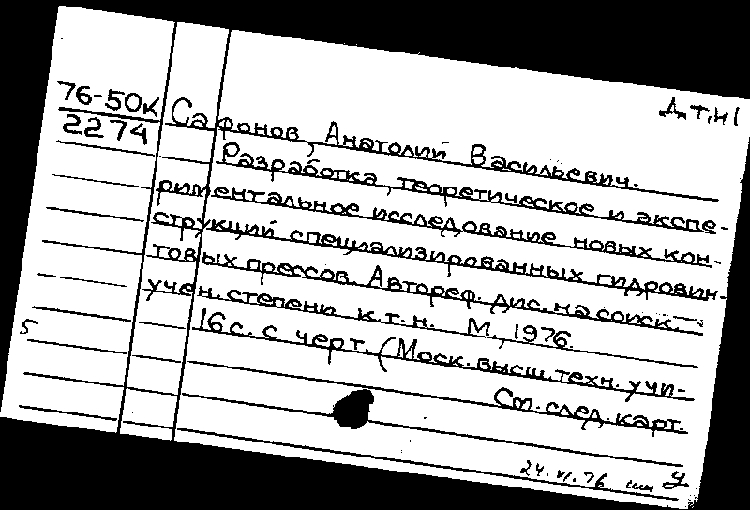 Д.т.н
76-50к
2274
Сафонов, Анатолий Васильевич.
Разработка, теоретическое и экспе-
риментальное исследование новых кон-
струкций специализированных гидровин-
товых прессов. Автореф. дис. на соиск.
учен. степени к.т.н. М., 1976.
16 с. с черт. (Моск. высш. техн. учи-
См. след. карт.
5
24.XI.76